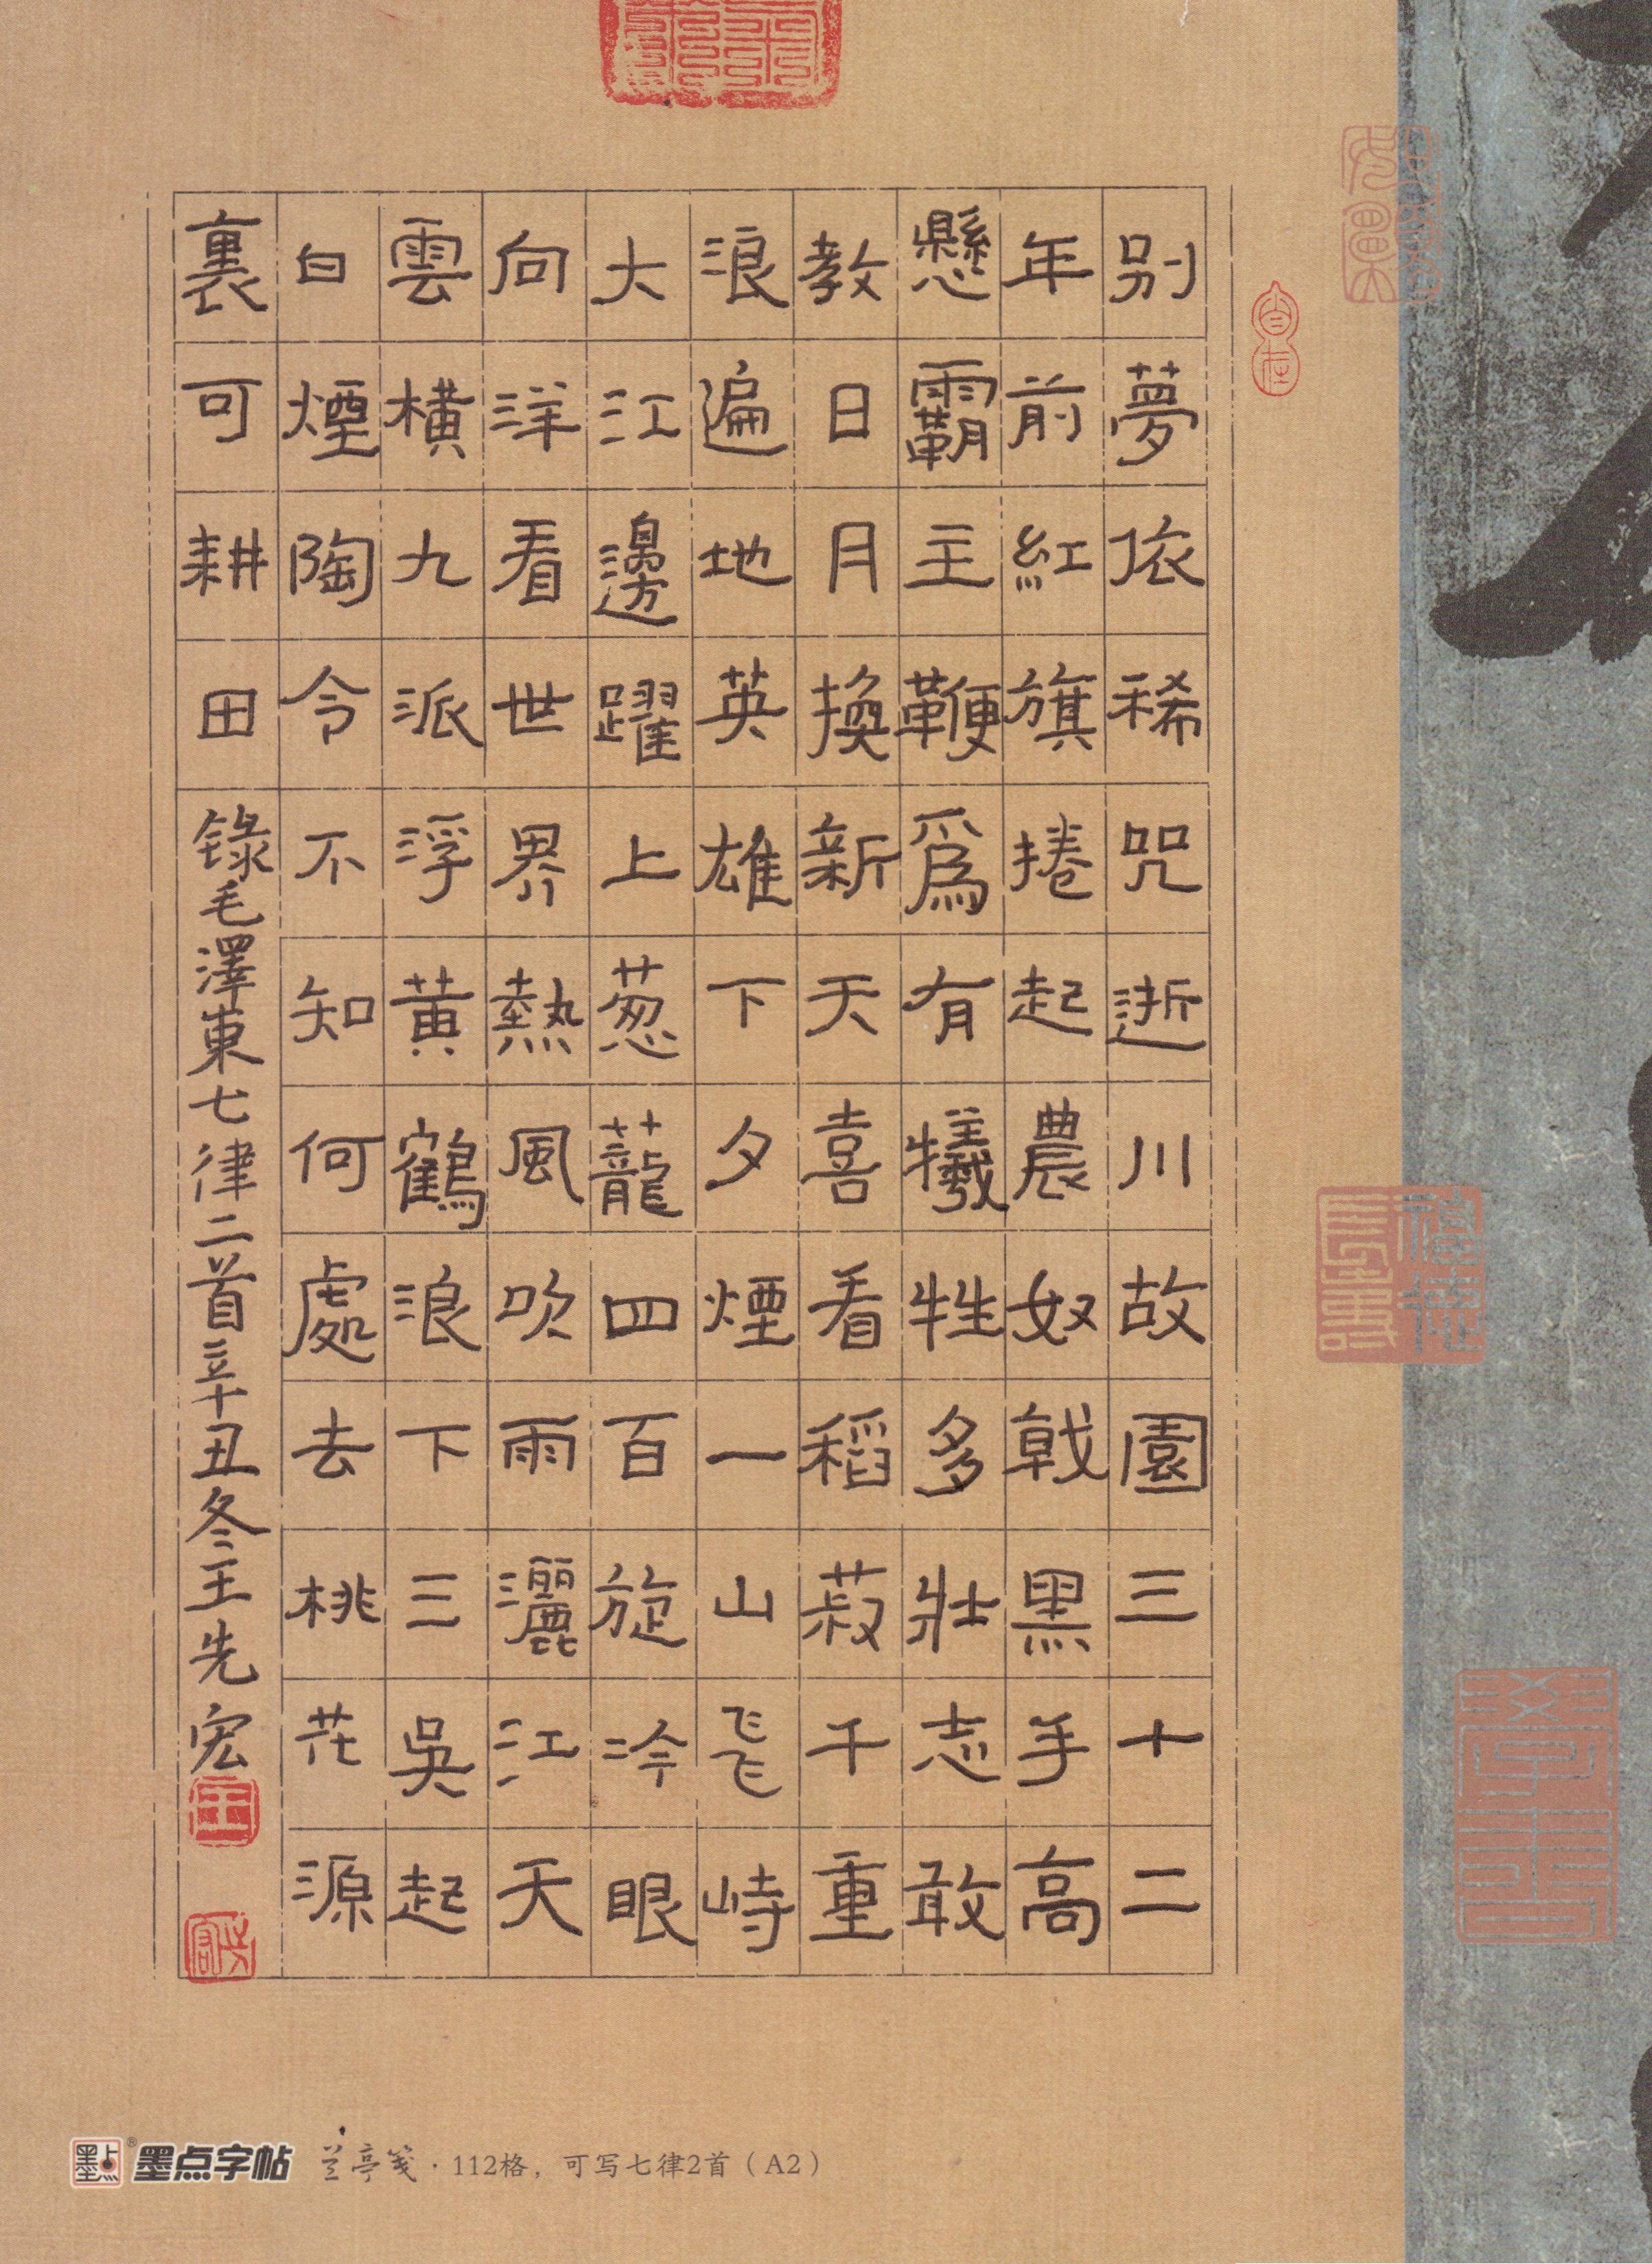 别夢依稀咒逝川故園三十二
年前紅旗捲起農奴戟黑手高
懸霸主鞭爲有犧牲多壯志敢
教日月換新天喜看稻菽千重
浪遍地英雄下夕煙一山飛峙
大江邊躍上葱蘢四百旋冷眼
向洋看世界熱風吹雨灑江天
雲橫九派浮黃鶴浪下三吳起
白煙陶令不知何處去桃花源
裏可耕田
錄毛澤東七律二首辛丑冬王先宏
王
墨点字帖
兰亭笺·112格,可写七律2首(A2)